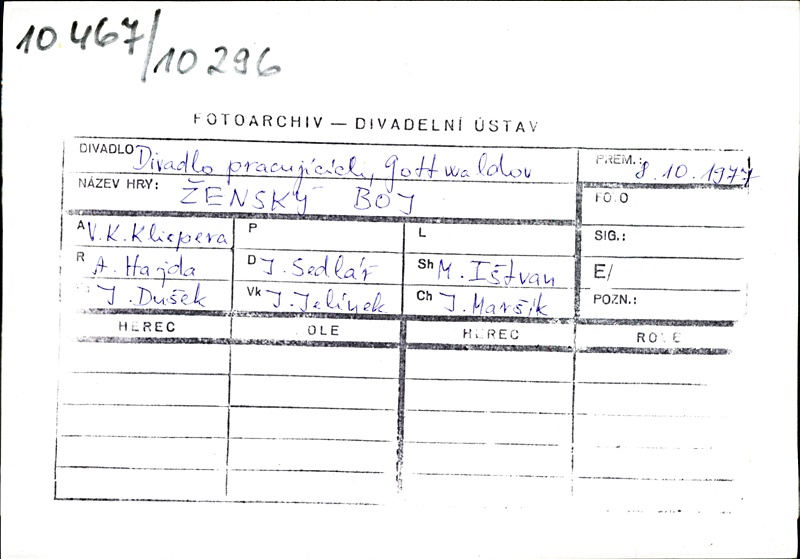 10 467/10 296
FOTOARCHIV — DIVADELNÍ ÚSTAV
DIVADLO Divadlo pracujících, Gottwaldov
PREM.: 8.10.1977
NÁZEV HRY: ŽENSKÝ BOJ
FOTO
A V. K. Klicpera P L SIG.:
R A. Hajda D J. Sedlář Sh M. Ištvan E/
J. Dušek Vk J. Jelínek Ch J. Maršík POZN.:
HEREC OLE HEREC ROLE